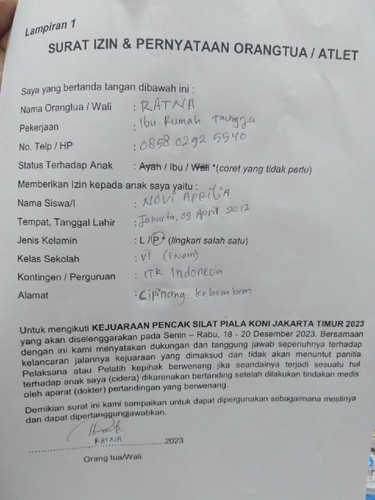 Lampiran 1
SURAT IZIN & PERNYATAAN ORANGTUA / ATLET
Saya yang bertanda tangan dibawah ini :
Nama Orangtua / Wali : RATNA
Pekerjaan : Ibu Rumah Tangga
No. Telp / HP : 0858 0292 5540
Status Terhadap Anak : Ayah / Ibu / Wali *(coret yang tidak perlu)
Memberikan Izin kepada anak saya yaitu :
Nama Siswa/I : NOVI APRILIA
Tempat, Tanggal Lahir : Jakarta, 09 April 2012
Jenis Kelamin : L / P * (lingkari salah satu)
Kelas Sekolah : VI (Enam)
Kontingen / Perguruan : ITK Indonesia
Alamat : Cipinang Kebembem
Untuk mengikuti KEJUARAAN PENCAK SILAT PIALA KONI JAKARTA TIMUR 2023
yang akan diselenggarakan pada Senin – Rabu, 18 - 20 Desember 2023. Bersamaan
dengan ini kami menyatakan dukungan dan tanggung jawab sepenuhnya terhadap
kelancaran jalannya kejuaraan yang dimaksud dan tidak akan menuntut panitia
Pelaksana atau Pelatih kepihak berwenang jika seandainya terjadi sesuatu hal
terhadap anak saya (cidera) dikarenakan bertanding setelah dilakukan tindakan medis
oleh aparat (dokter) pertandingan yang berwenang.
Demikian surat ini kami sampaikan untuk dapat dipergunakan sebagaimana mestinya
dan dapat dipertanggungjawabkan.
RATNA
2023
Orang tua/Wali